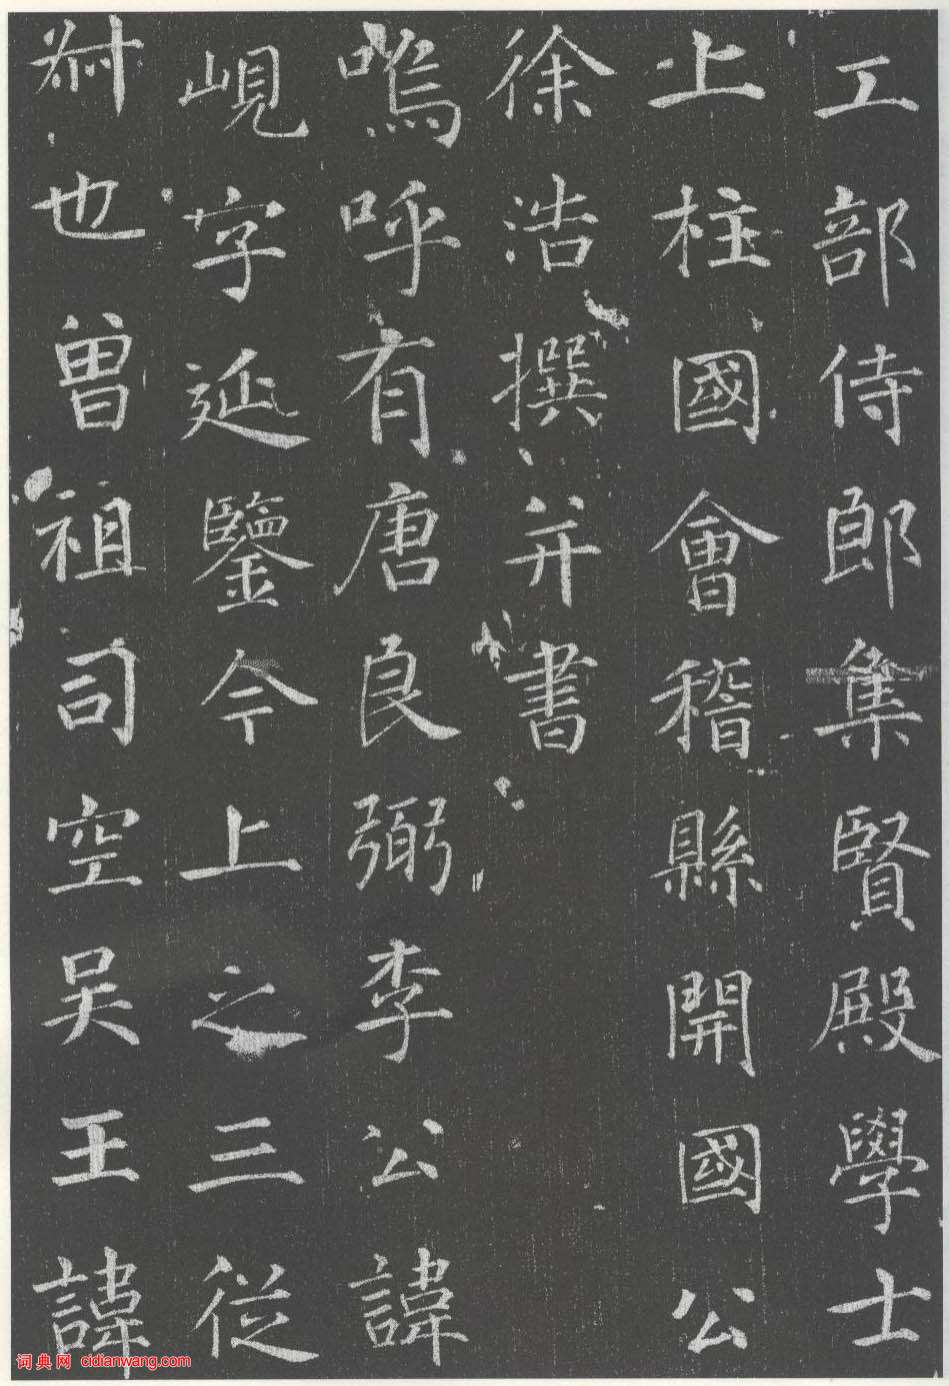 工部侍郎集賢殿學士
上柱國會稽縣開國公
徐浩撰并書
嗚呼有唐良弼李公諱
峴字延鑒今上之三從
叔也曽祖司空吴王諱
词典网 cidianwang.com